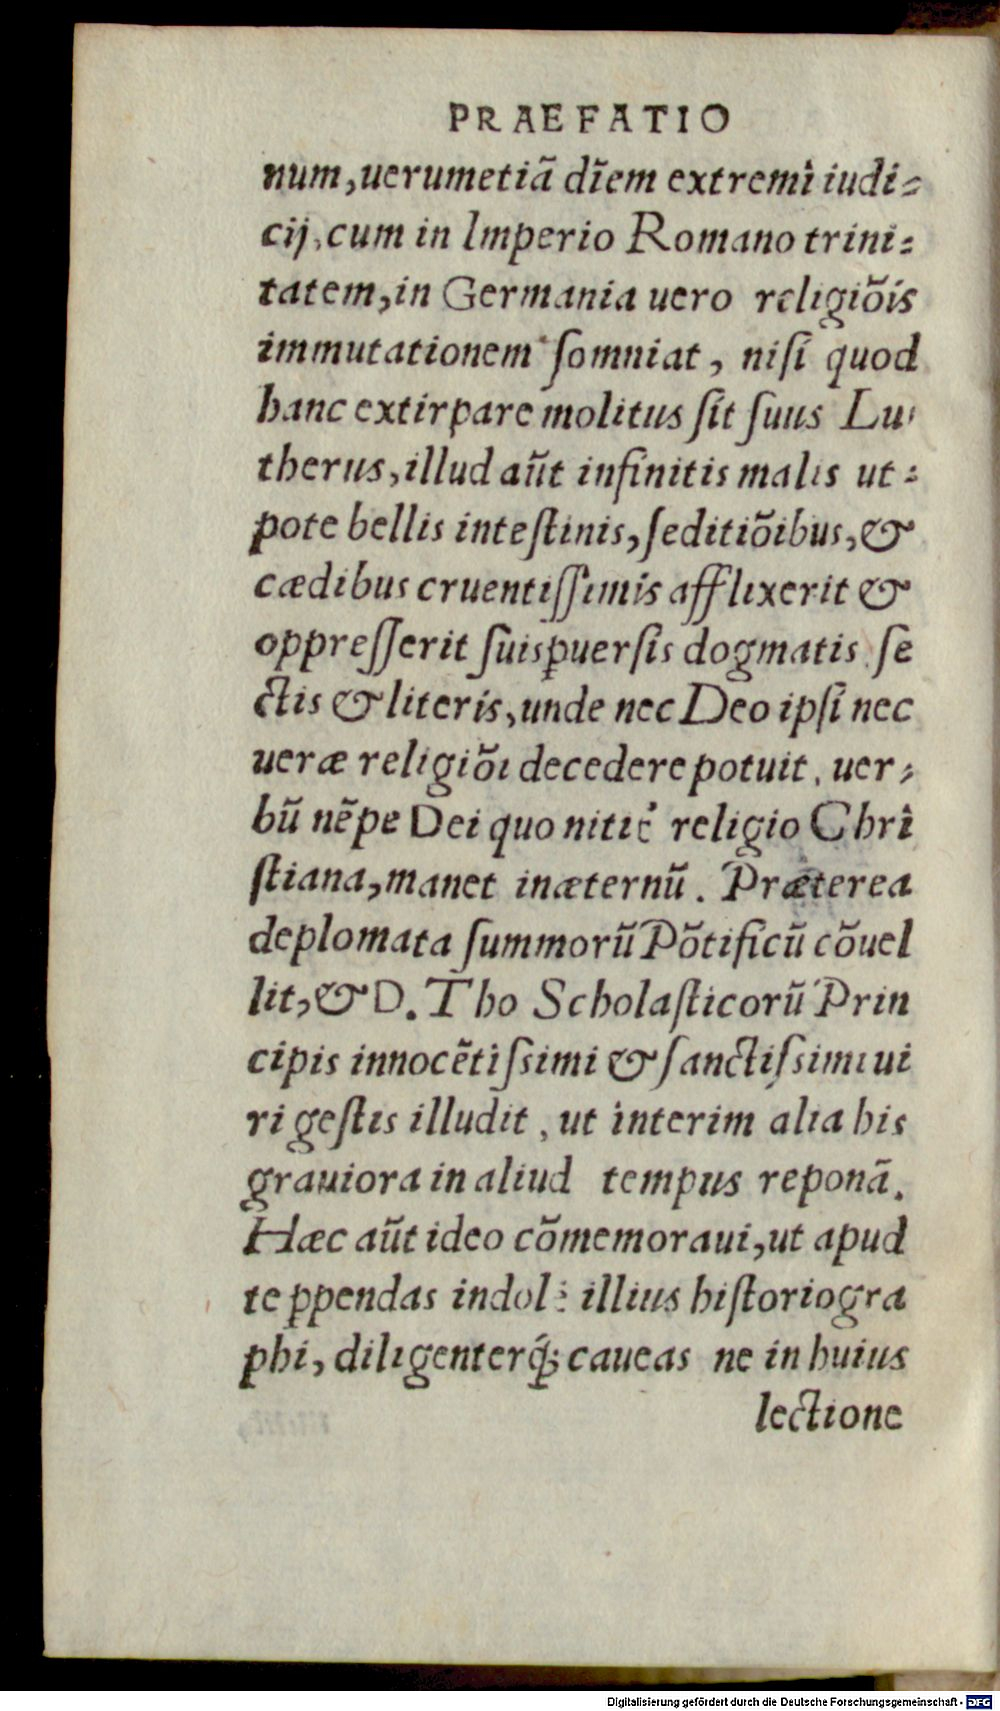 PRAEFATIO
num, uerumetiã dĩem extremi iudi=
cij, cum in Imperio Romano trini=
tatem, in Germania uero religiõis
immutationem somniat, nisi quod
hanc extirpare molitus sit suus Lu
therus, illud aũt infinitis malis ut=
pote bellis intestinis, seditiõibus, &
cædibus cruentissimis afflixerit &
oppresserit suis ꝑuersis dogmatis, se
ctis & literis, unde nec Deo ipsi nec
ueræ religiõi decedere potuit, uer=
bũ nẽpe Dei quo nitiᷓ religio Chri
stiana, manet in æternũ. Præterea
deplomata summorũ Põtificũ cõuel
lit, & D. Tho Scholasticorũ Prin
cipis innocẽtissimi & sanctissimi ui
ri gestis illudit, ut interim alia his
grauiora in aliud tempus reponã.
Hæc aũt ideo cõmemoraui, ut apud
te ꝑpendas indolẽ illius historiogra
phi, diligenterq́; caueas ne in huius
lectione
Digitalisierung gefördert durch die Deutsche Forschungsgemeinschaft - DFG